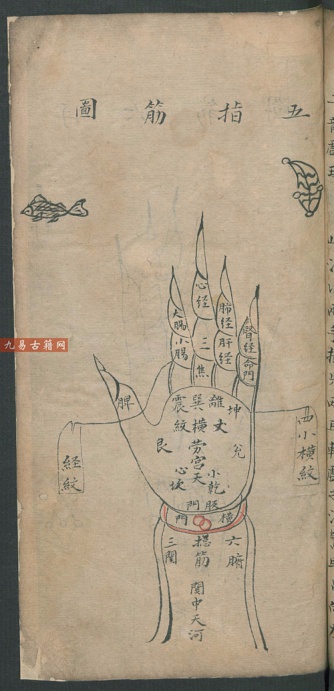 五指筋圖
九易古籍网
心经
大腸
小腸
三焦
肺经
肝经
腎经
命門
脾
震
巽
離
坤
坎
艮
兌
乾
横紋
勞宮
天心
小
四小横紋
経紋
門
三関
總筋
六腑
関中天河